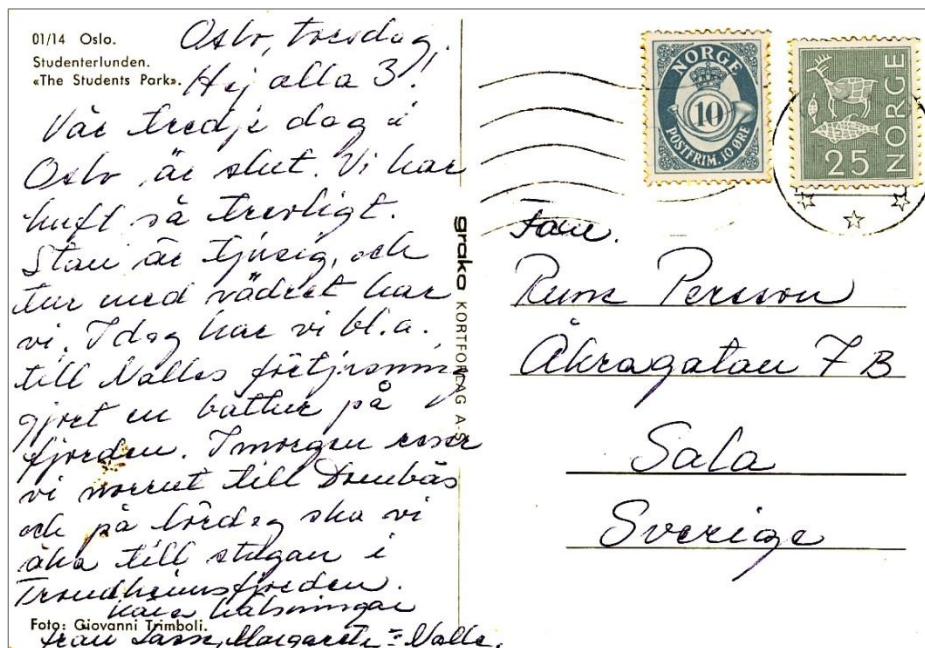 01/14 Oslo.
Studenterlunden.
«The Students Park».
Oslo, torsdag.
Hej alla 3!
Vår tredje dag i
Oslo är slut. Vi har
haft så trevligt.
Stan är tjusig, och
tur med vädret har
vi. Idag har vi bl.a.
till Nalles förtjusning
gjort en båttur på
fjorden. I morgon reser
vi norrut till Dombås
och på lördag ska vi
åka till stugan i
Trondheimsfjorden.
Kära hälsningar
Foto: Giovanni Trimboli.
från Lasse, Margareta - Nalle.
grako KORTFORLAG A-S
NORGE
10
POSTFRIM. 10 ØRE
NORGE
25
Fam.
Rune Persson
Åkragatan 7 B
Sala
Sverige